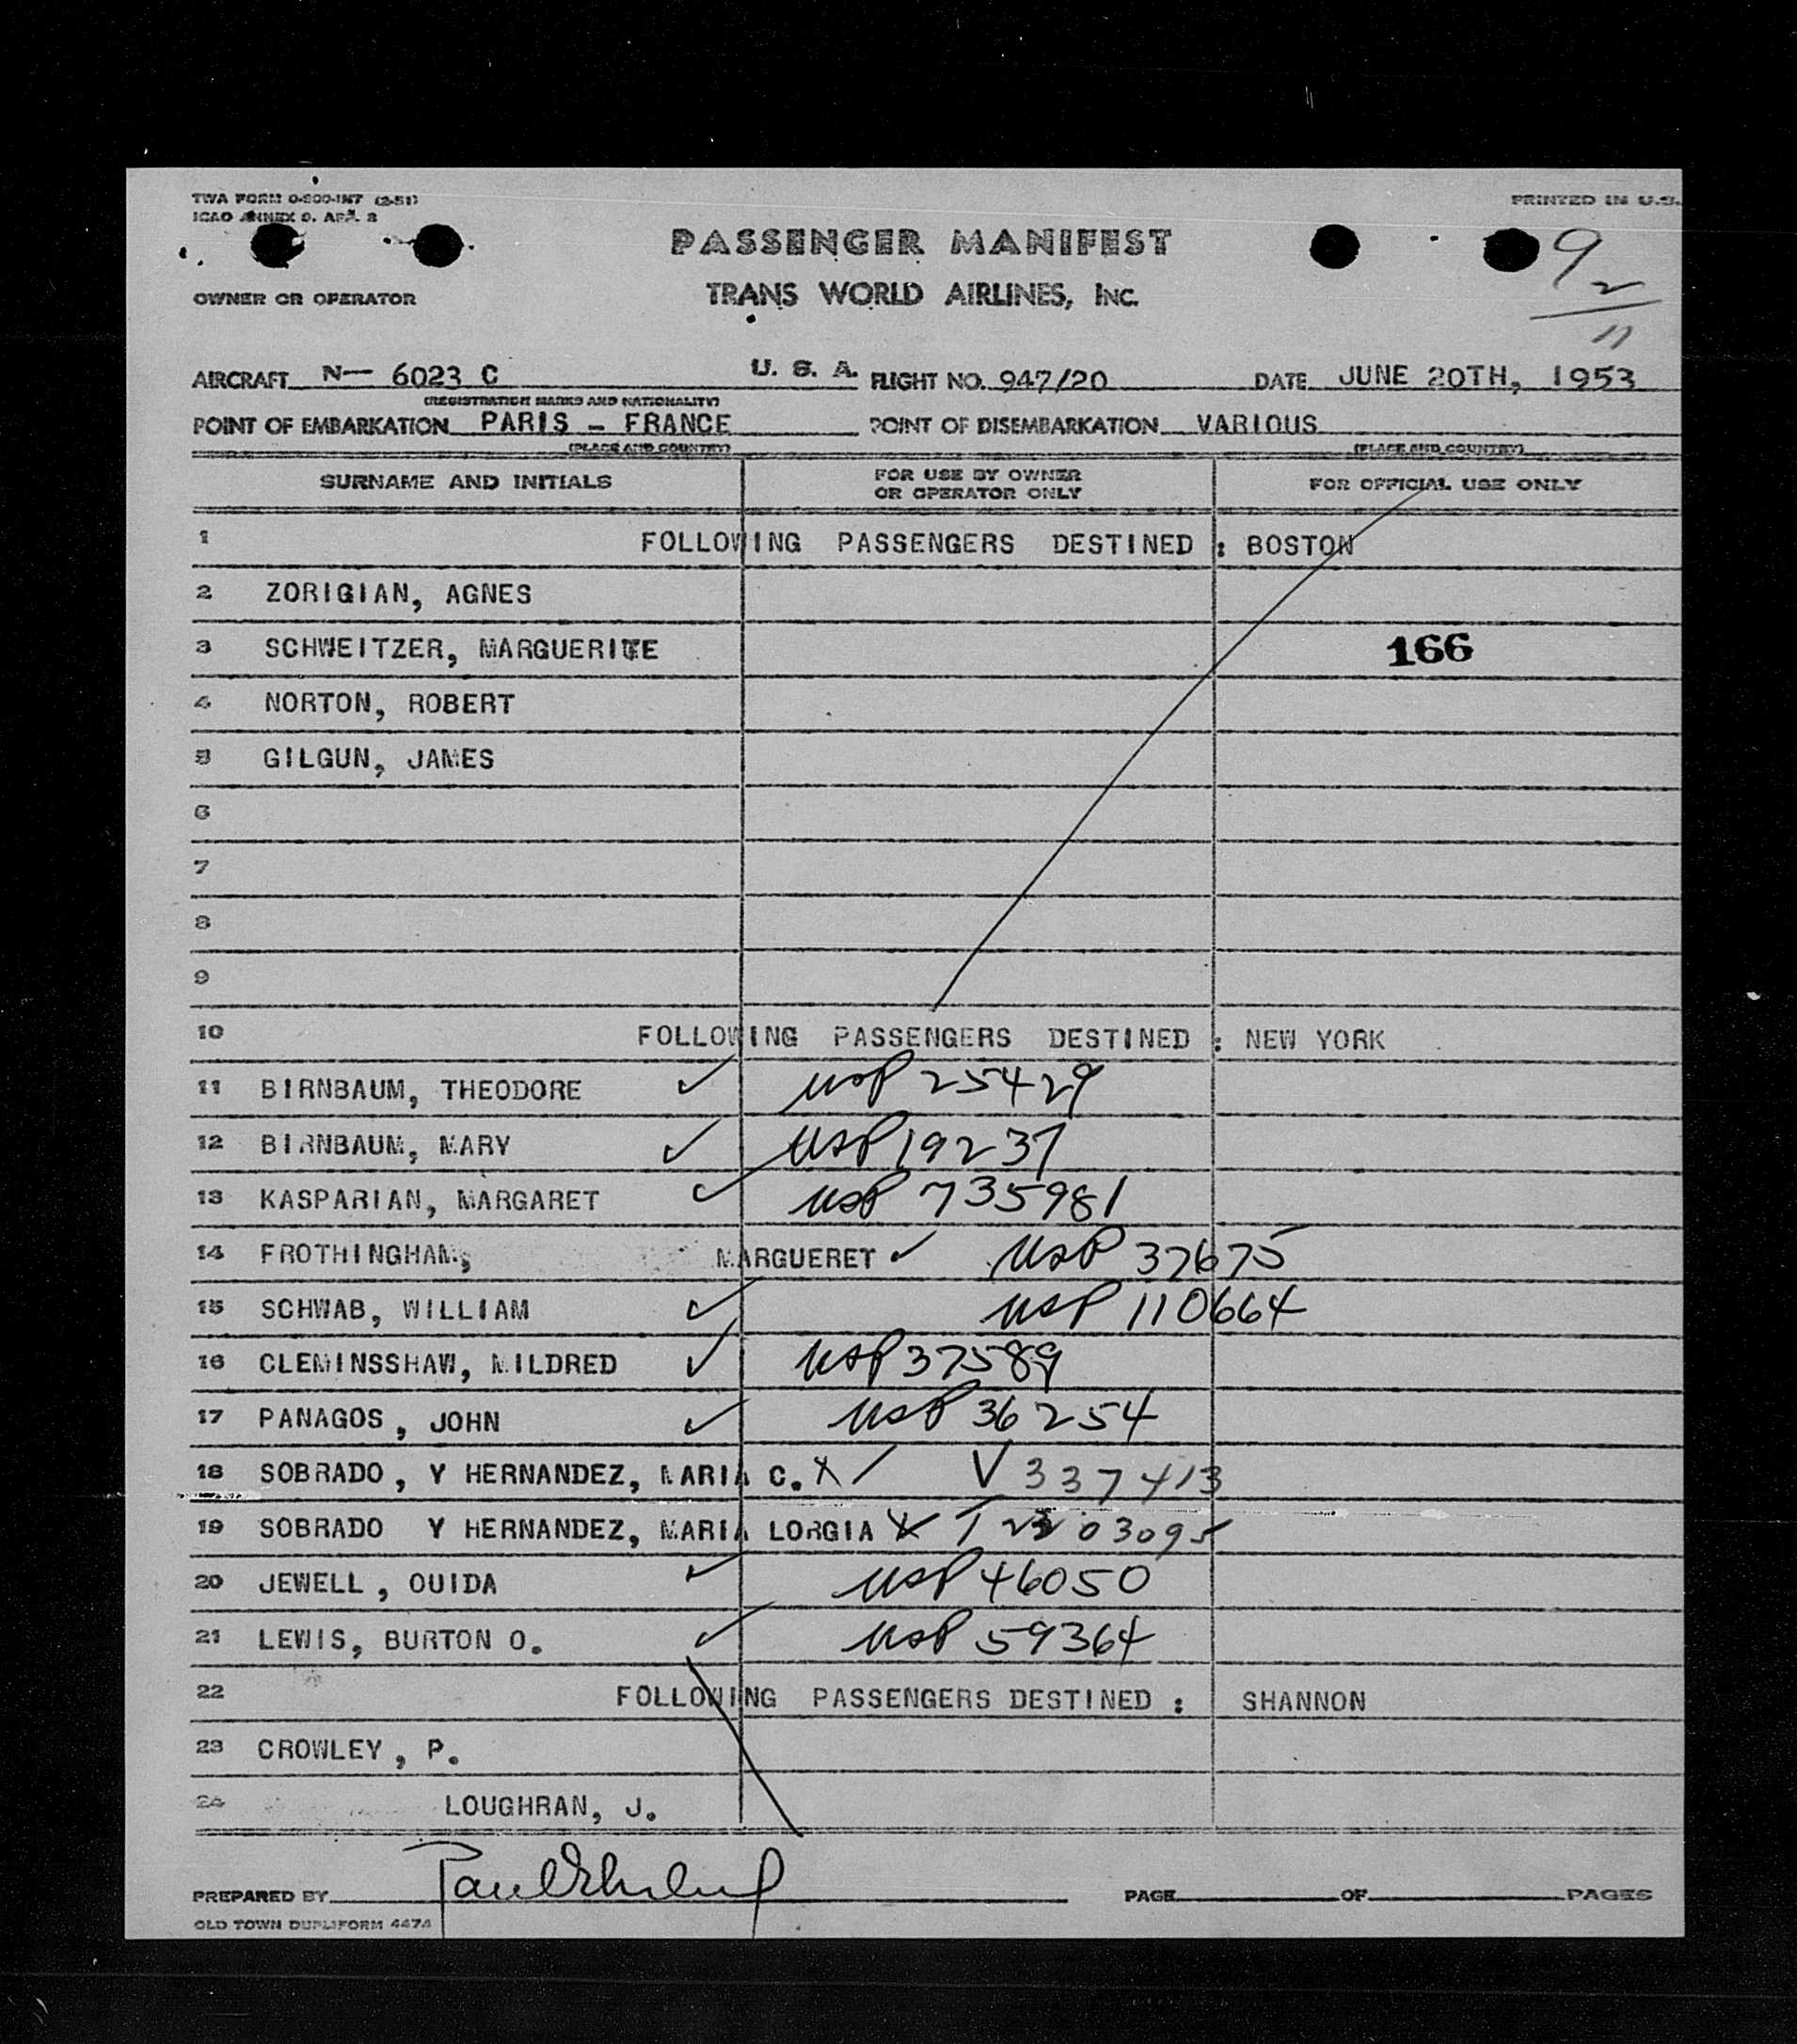 TWA FORM 0-900-INT (2-51)
PRINTED IN U.S.
ICAO ANNEX 9. APP. 2
PASSENGER MANIFEST
9
2
11
OWNER OR OPERATOR TRANS WORLD AIRLINES, INC.
AIRCRAFT N— 6023 C U. S. A. FLIGHT NO. 947/20 DATE JUNE 20TH, 1953
(REGISTRATION MARKS AND NATIONALITY)
POINT OF EMBARKATION PARIS - FRANCE POINT OF DISEMBARKATION VARIOUS
(PLACE AND COUNTRY) (PLACE AND COUNTRY)
SURNAME AND INITIALS FOR USE BY OWNER OR OPERATOR ONLY FOR OFFICIAL USE ONLY
1 FOLLOWING PASSENGERS DESTINED : BOSTON
2 ZORIGIAN, AGNES
3 SCHWEITZER, MARGUERITE 166
4 NORTON, ROBERT
5 GILGUN, JAMES
6
7
8
9
10 FOLLOWING PASSENGERS DESTINED : NEW YORK
11 BIRNBAUM, THEODORE ✓ USP 25429
12 BIRNBAUM, MARY ✓ USP 19237
13 KASPARIAN, MARGARET ✓ USP 735981
14 FROTHINGHAM, MARGUERET ✓ USP 37675
15 SCHWAB, WILLIAM ✓ USP 110664
16 CLEMINSSHAW, MILDRED ✓ USP 37589
17 PANAGOS, JOHN ✓ USP 36254
18 SOBRADO, Y HERNANDEZ, MARIA C. X / V 337413
19 SOBRADO Y HERNANDEZ, MARIA LORGIA X
20 JEWELL, OUIDA ✓ USP 46050
21 LEWIS, BURTON O. ✓ USP 59364
22 FOLLOWING PASSENGERS DESTINED : SHANNON
23 CROWLEY, P.
24 LOUGHRAN, J.
PREPARED BY Paul PAGE OF PAGES
OLD TOWN DUPLIFORM 4474